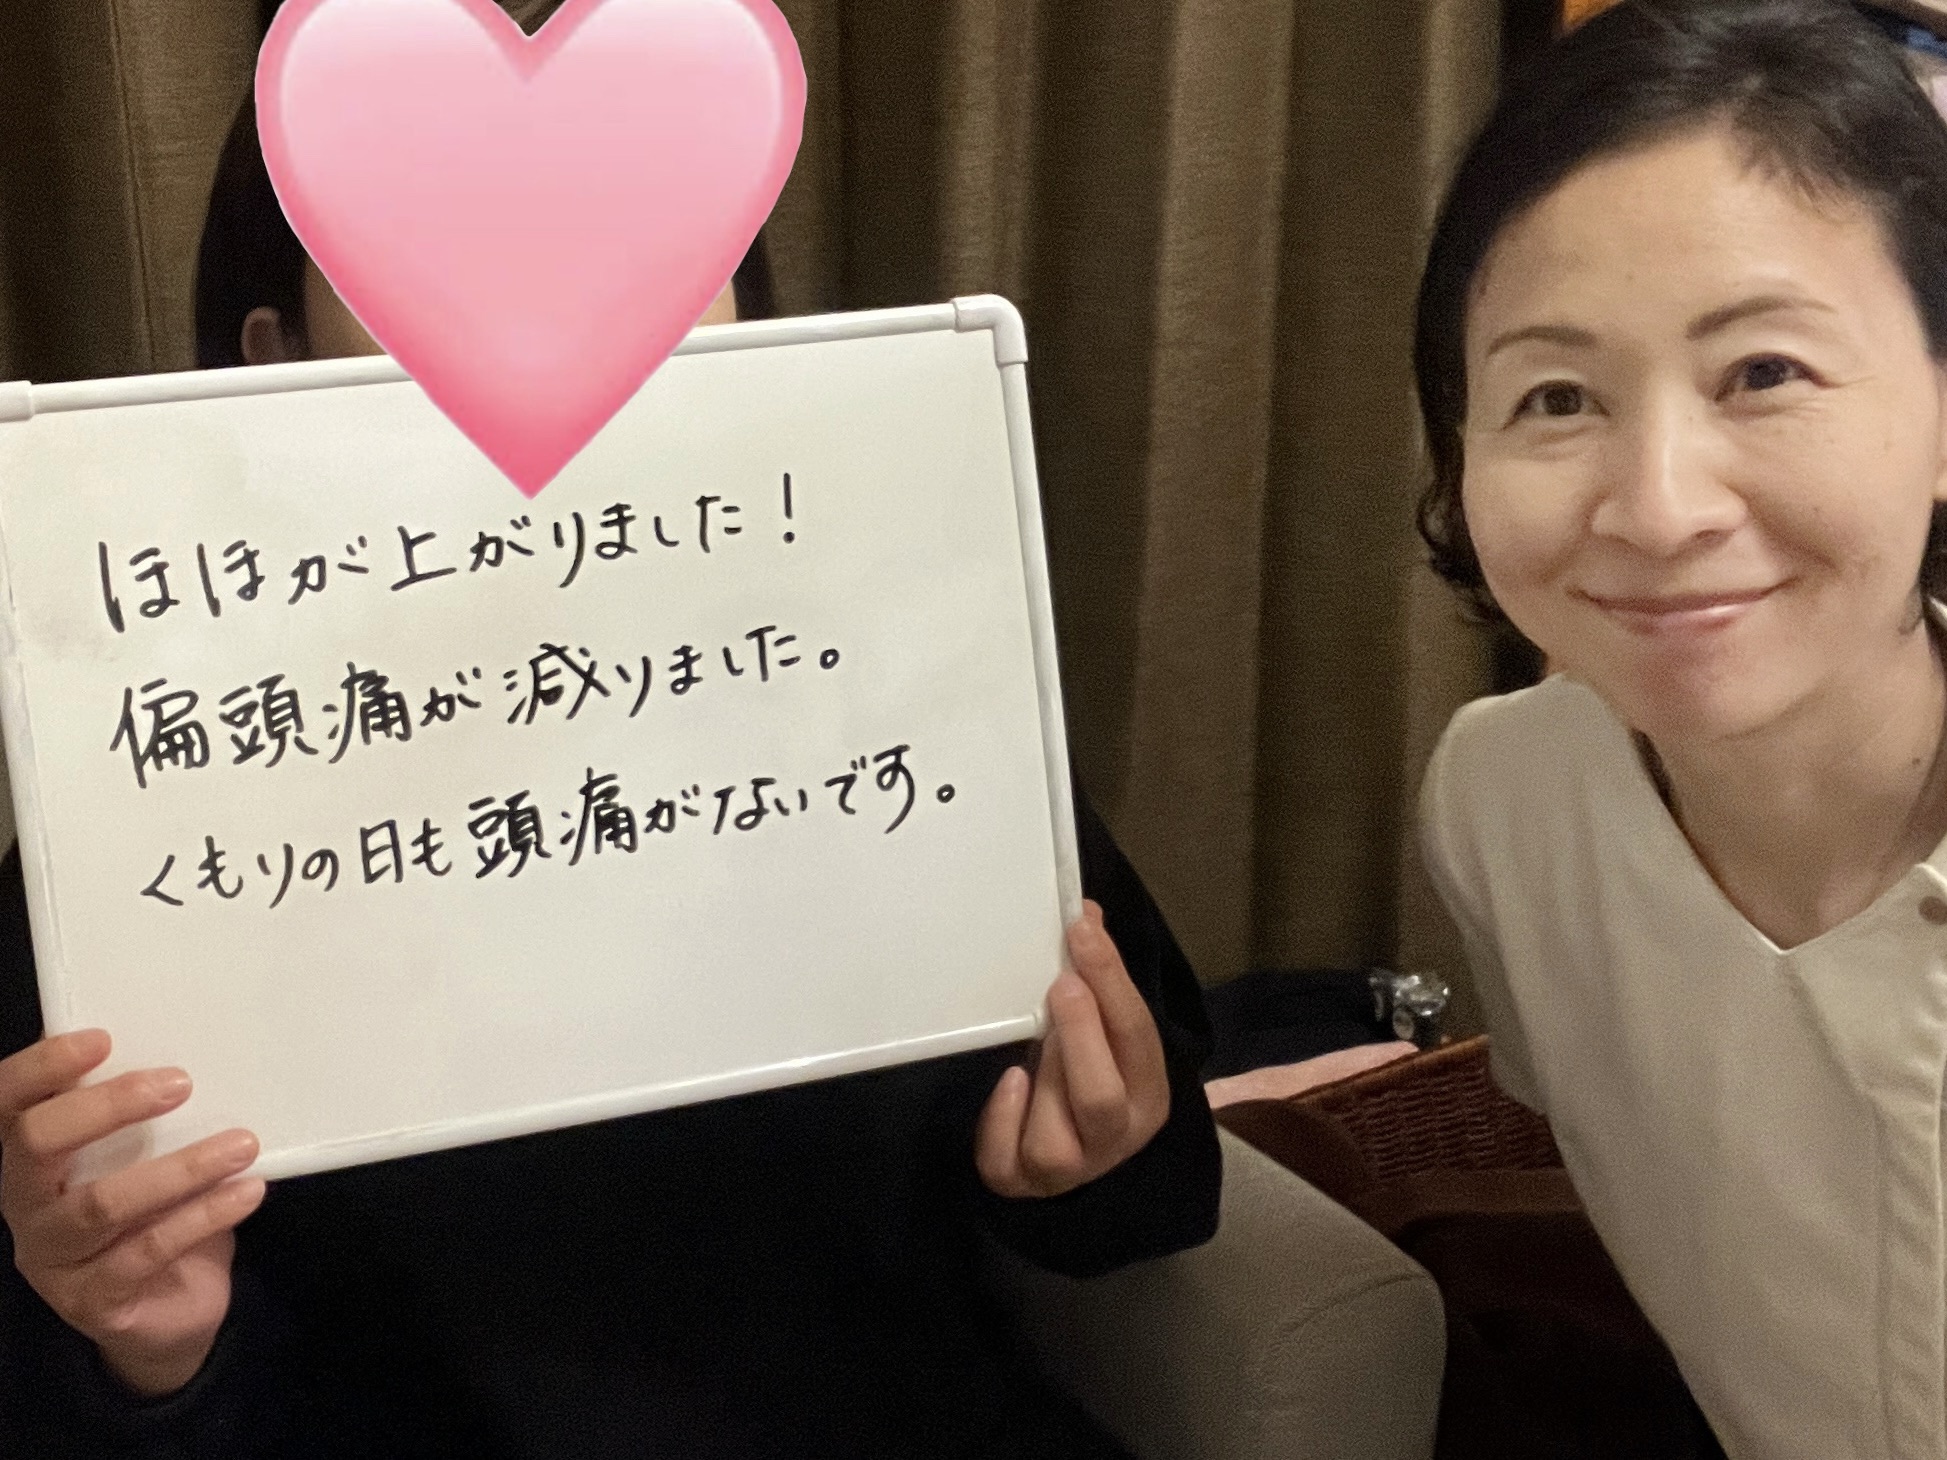 ほほが上がりました!
偏頭痛が減りました。
くもりの日も頭痛がないです。